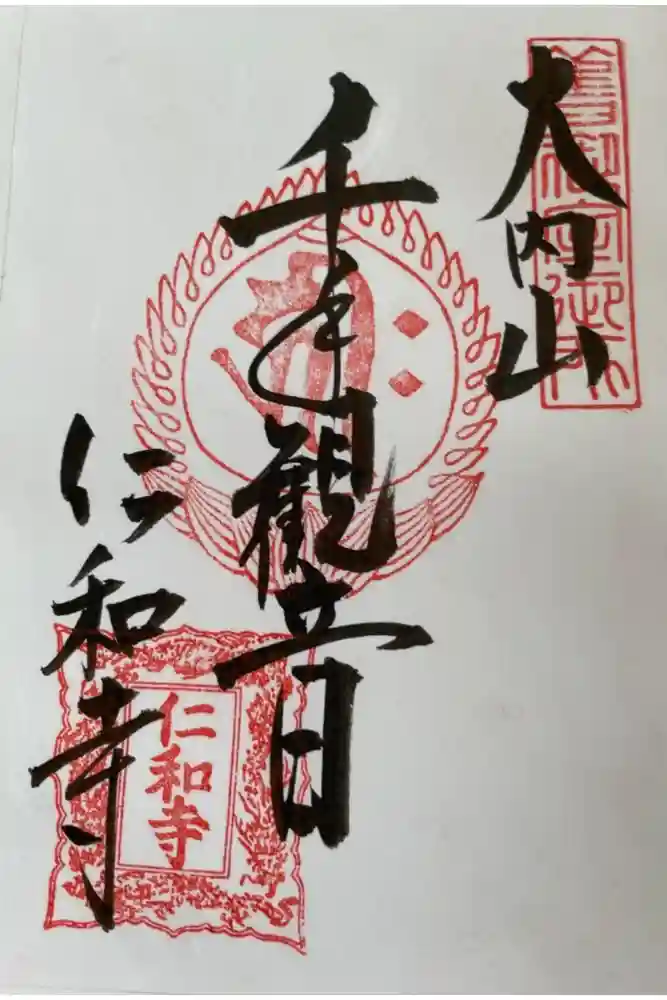 大内山
千手観音
仁和寺
仁和寺